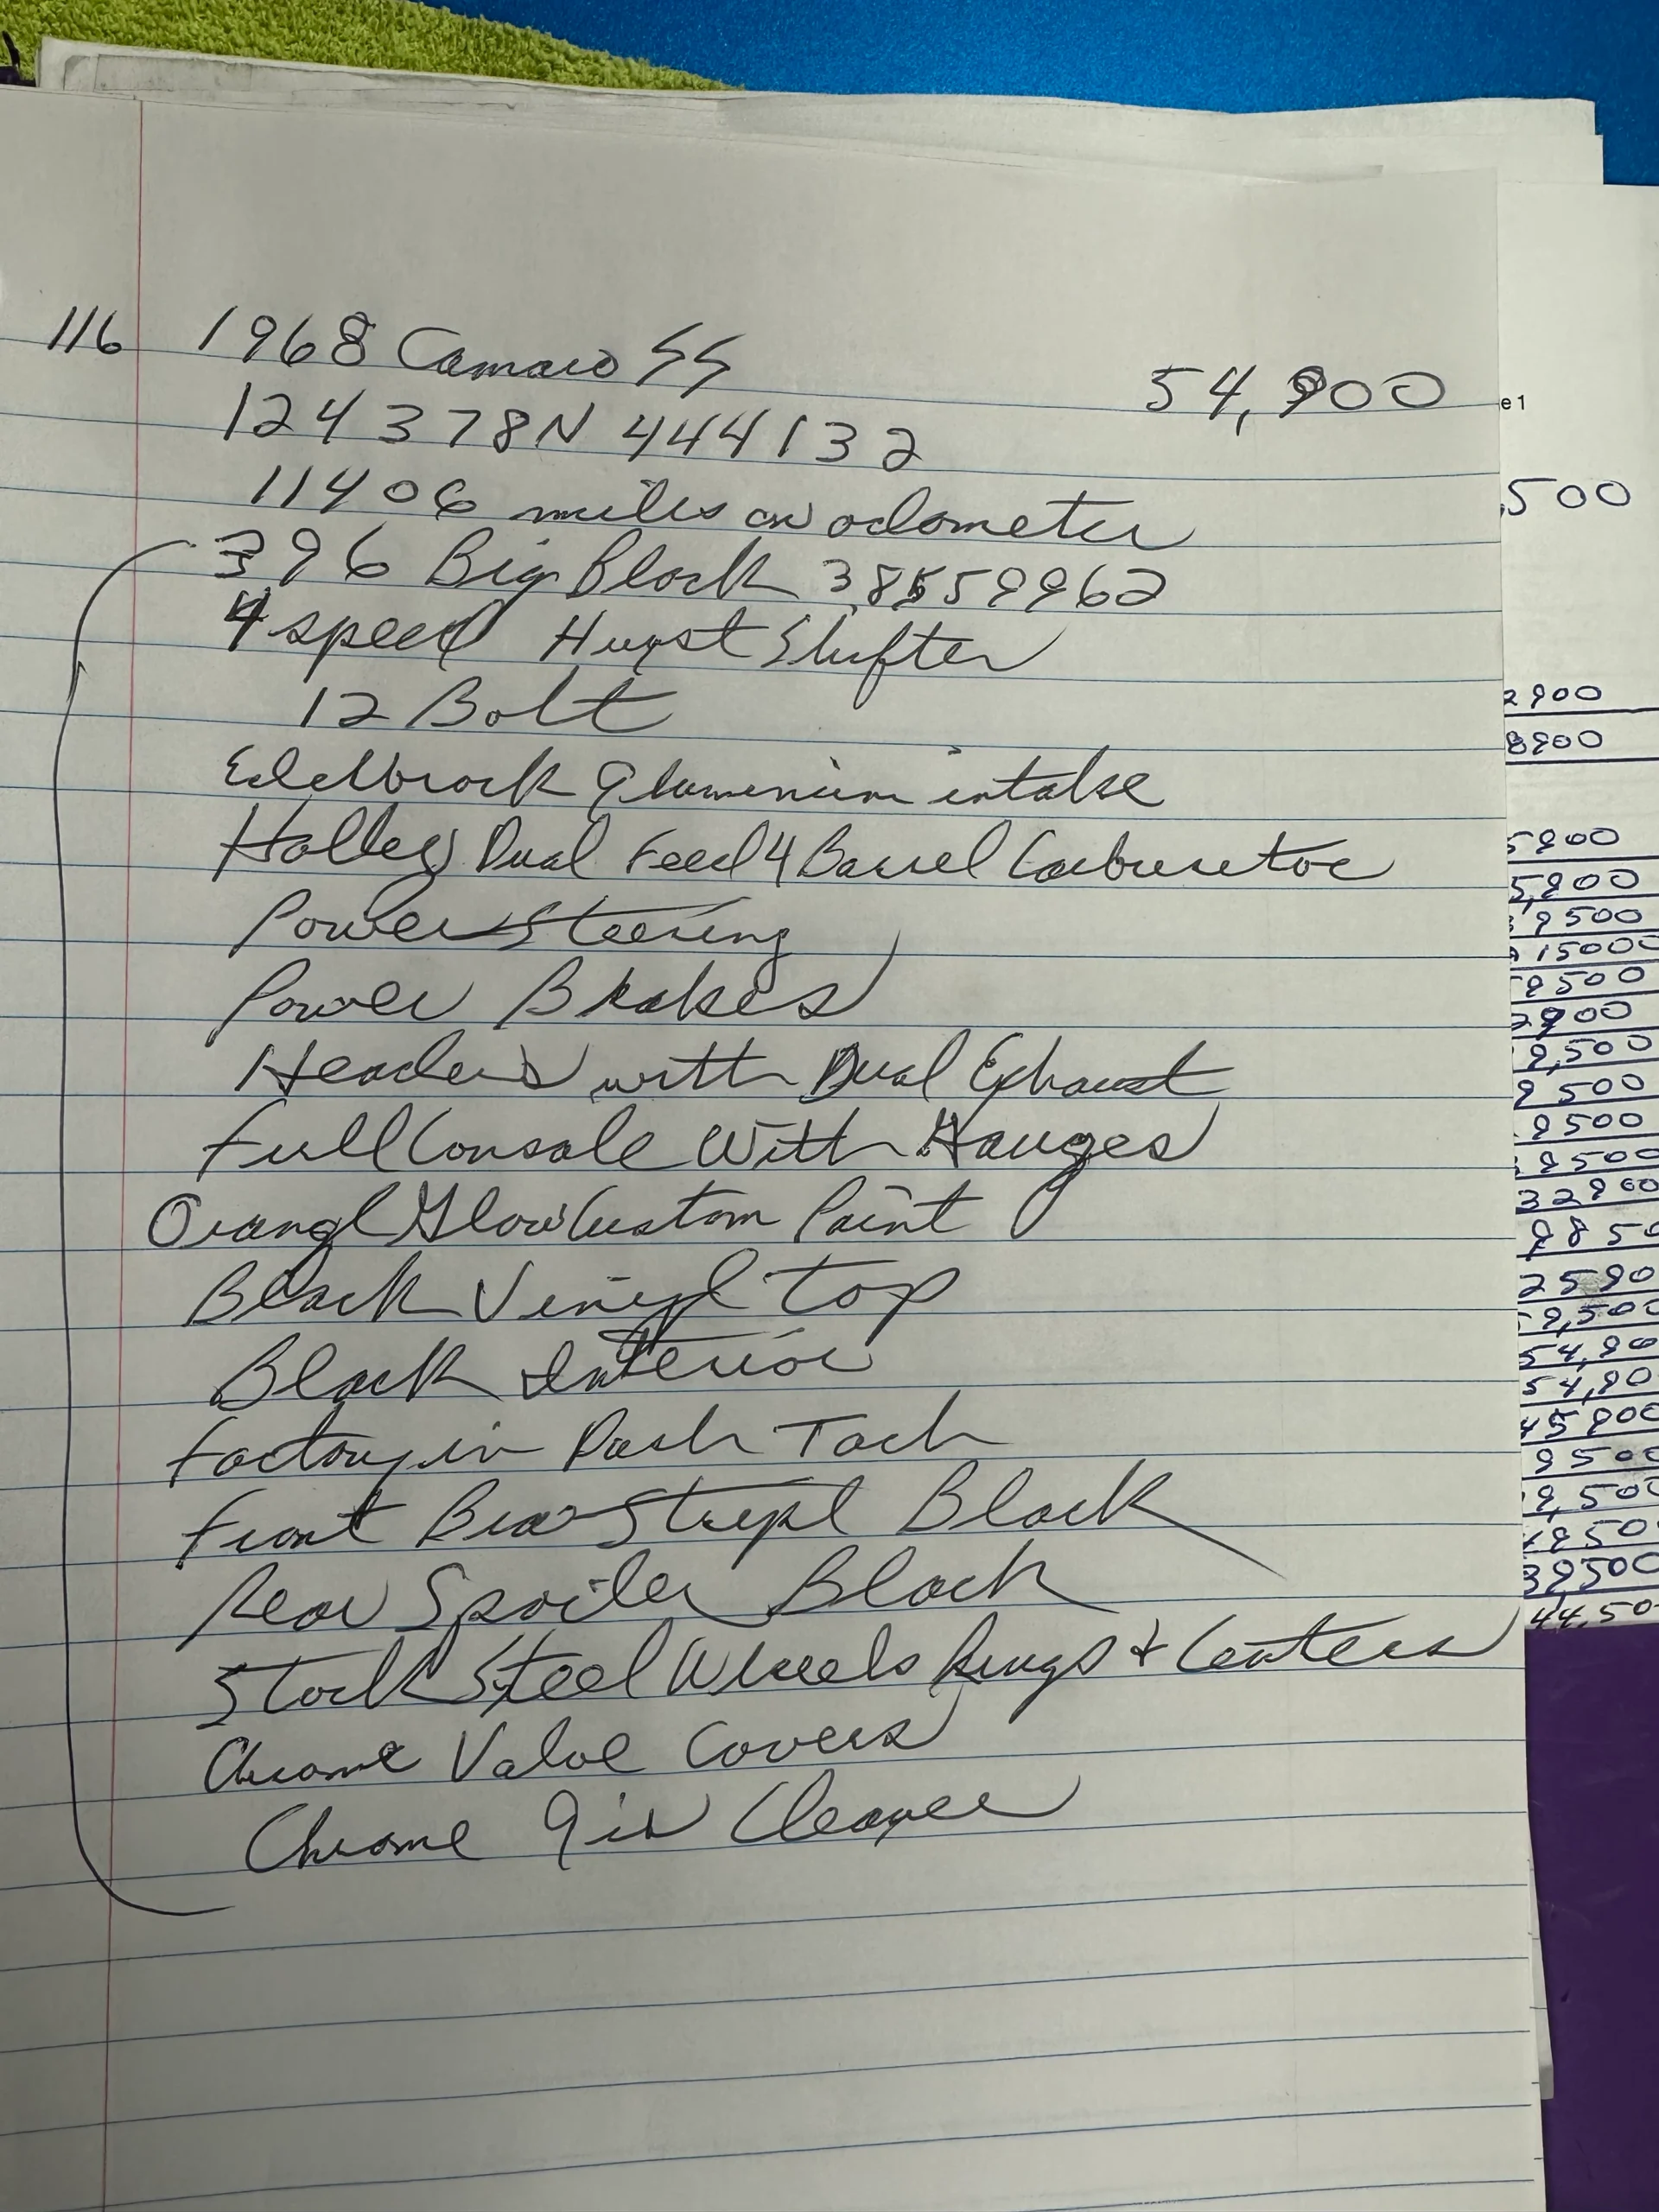 116 1968 Camaro SS 54,900
124378N444132
11406 miles on odometer
396 Big Block 38559962
4 speed Hurst Shifter
12 Bolt
Edelbrock Aluminium intake
Holley Dual Feed 4 Barrel Carburetor
Power Steering
Power Brakes
Headers with Dual Exhaust
Full Console With Gauges
Orange Glow Custom Paint
Black Vinyl top
Black Interior
Factory in Dash Tach
Front Bra Stripe Black
Rear Spoiler Black
Stock Steel Wheels Rings & Centers
Chrome Valve Covers
Chrome Air Cleaner
e1
,500
2900
8900
5900
5,900
9500
15000
9500
2900
9,500
9500
9500
9500
32900
985
2590
9,500
54,90
54,90
45900
9500
9,500
950
39500
44,50